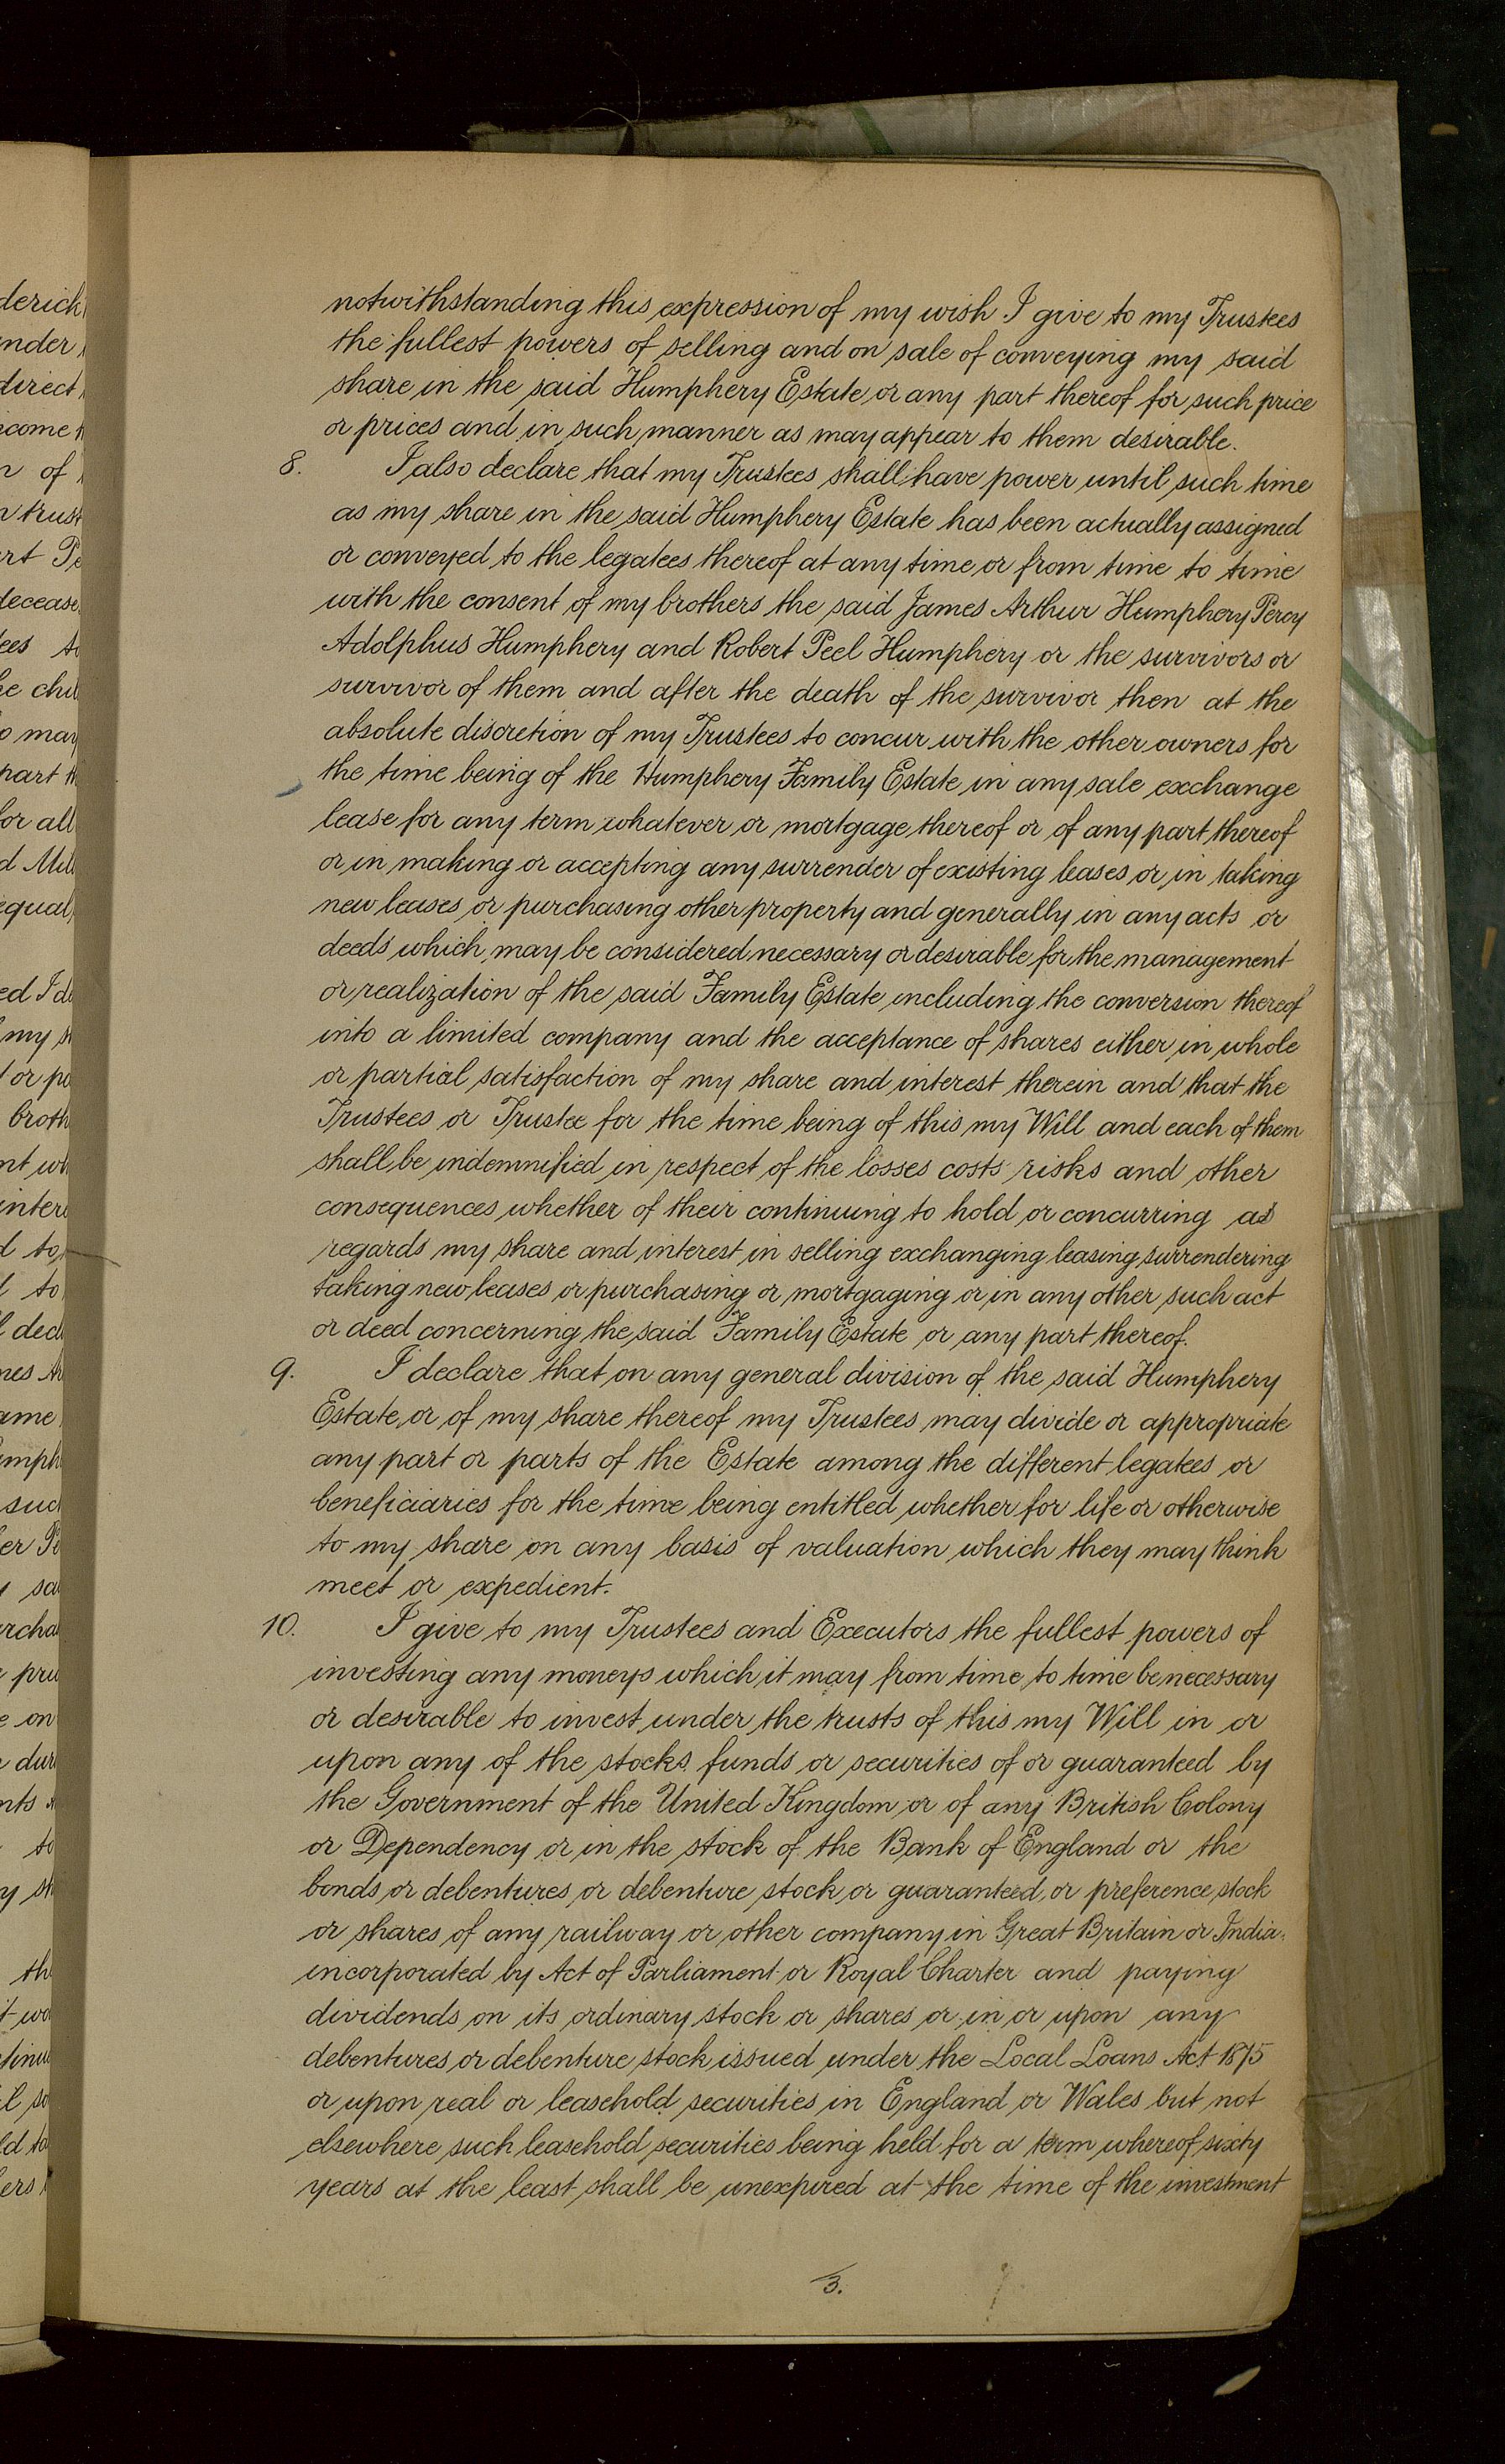 notwithstanding this expression of my wish I give to my Trustees
the fullest powers of selling and on sale of conveying my said
share in the said Humphery Estate or any part thereof for such price
or prices and in such manner as may appear to them desirable.
8. I also declare that my Trustees shall have power until such time
as my share in the said Humphery Estate has been actually assigned
or conveyed to the legatees thereof at any time or from time to time
with the consent of my brothers the said James Arthur Humphery Percy
Adolphus Humphery and Robert Peel Humphery or the survivors or
survivor of them and after the death of the survivor then at the
absolute discretion of my Trustees to concur with the other owners for
the time being of the Humphery Family Estate in any sale exchange
lease for any term whatever or mortgage thereof or of any part thereof
or in making or accepting any surrender of existing leases or in taking
new leases or purchasing other property and generally in any acts or
deeds which may be considered necessary or desirable for the management
or realization of the said Family Estate including the conversion thereof
into a limited company and the acceptance of shares either in whole
or partial satisfaction of my share and interest therein and that the
Trustees or Trustee for the time being of this my Will and each of them
shall be indemnified in respect of the losses costs risks and other
consequences whether of their continuing to hold or concurring as
regards my share and interest in selling exchanging leasing surrendering
taking new leases or purchasing or mortgaging or in any other such act
or deed concerning the said Family Estate or any part thereof.
9. I declare that on any general division of the said Humphery
Estate or of my share thereof my Trustees may divide or appropriate
any part or parts of the Estate among the different legatees or
beneficiaries for the time being entitled whether for life or otherwise
to my share on any basis of valuation which they may think
meet or expedient.
10. I give to my Trustees and Executors the fullest powers of
investing any moneys which it may from time to time be necessary
or desirable to invest under the trusts of this my Will in or
upon any of the stocks funds or securities of or guaranteed by
the Government of the United Kingdom or of any British Colony
or Dependency or in the stock of the Bank of England or the
bonds or debentures or debenture stock or guaranteed or preference stock
or shares of any railway or other company in Great Britain or India
incorporated by Act of Parliament or Royal Charter and paying
dividends on its ordinary stock or shares or in or upon any
debentures or debenture stock issued under the Local Loans Act 1875
or upon real or leasehold securities in England or Wales but not
elsewhere such leasehold securities being held for a term whereof sixty
years at the least shall be unexpired at the time of the investment
3.